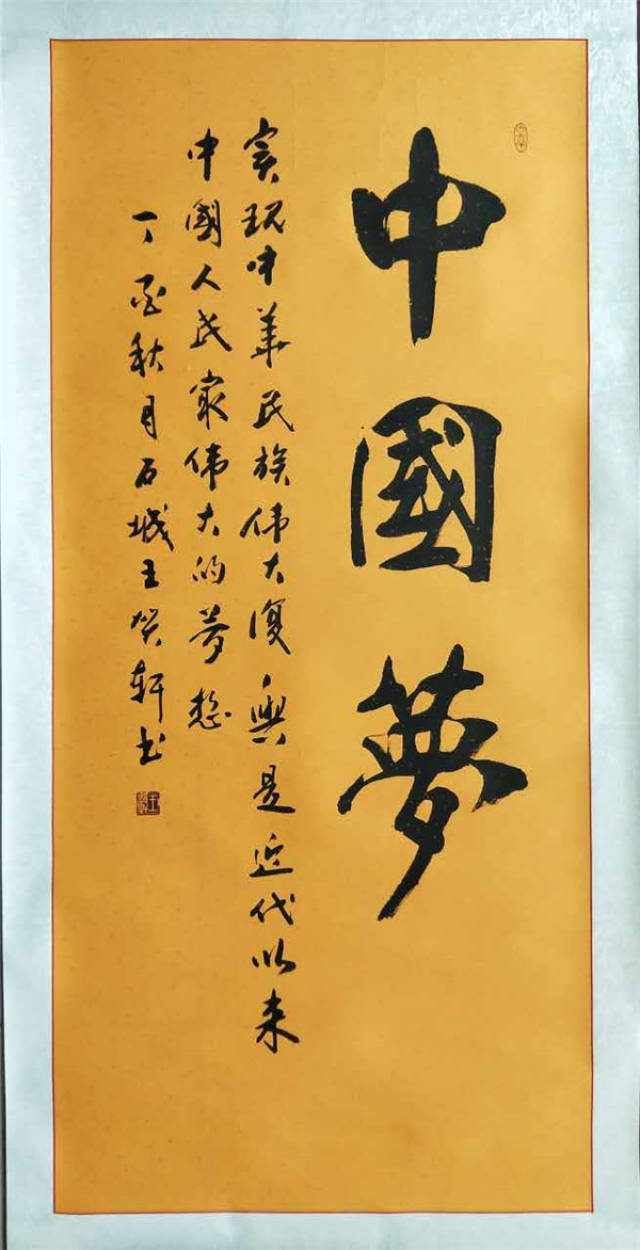 中國夢
实現中华民族伟大復興是近代以来
中國人民最伟大的夢想
丁酉秋月石城王癸轩书